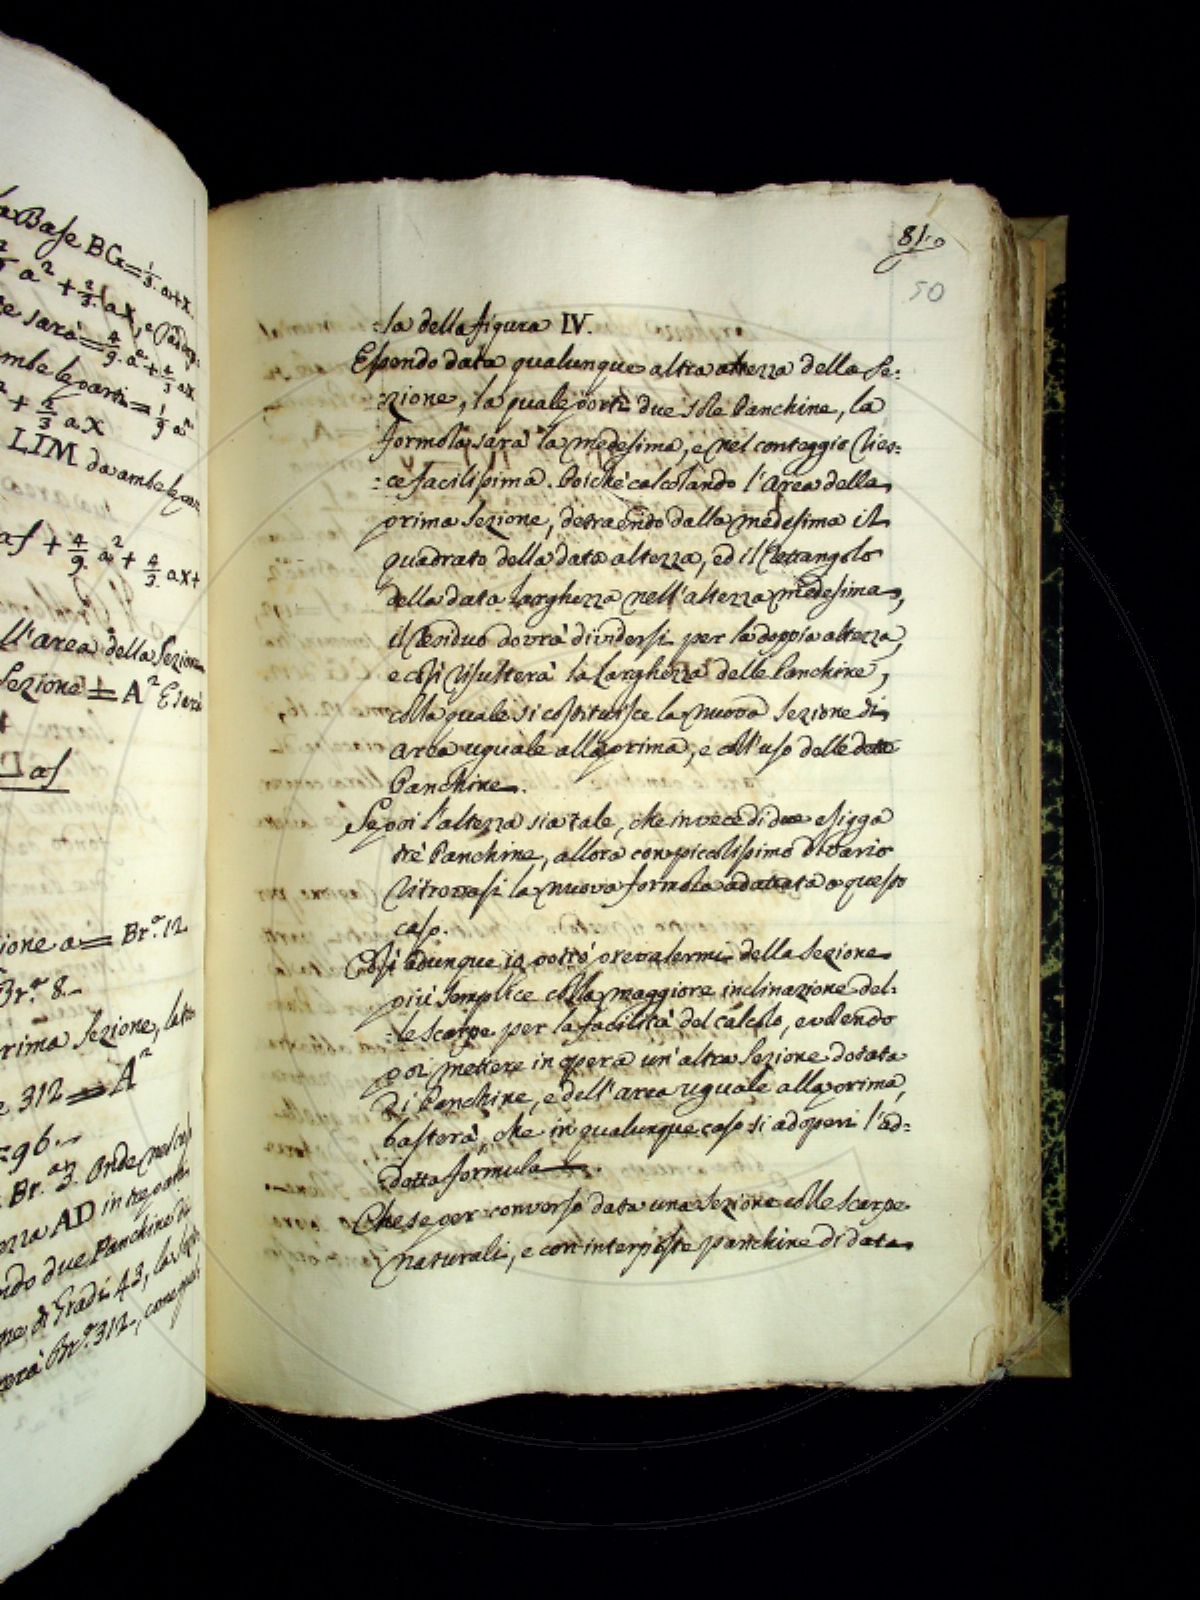 la Base BG=1/3. a+x.
a² + 2/3. ax, e
re sarà=4/9. a²+2/3 ax
ambe le parti=1/9 a²
+ 2/3 ax
LIM da ambe le par
af + 4/9. a²+ 4/3. ax+
ll'area della Sezione
Sezione = A² E sarà
af
zione a= Br.ª 12
Br.ª 8.
prima Sezione, la
e 312=A²
=96.
Br.ª 3. Onde nel
ezza AD in tre parti
ndo due Panchine di
ne di Gradi 43, la
verà Br.ª 312,
81.
50
:la della figura IV.
Essendo data qualunque altra altezza della Se:
:zione, la quale porti due sole Panchine, la
formola sarà la medesima, e nel conteggio ries:
:ce facilissima. Poichè calcolando l'Area della
prima Sezione, detraendo dalla medesima il
quadrato della data altezza, ed il Rettangolo
della data larghezza nell'altezza medesima,
il Residuo dovrà dividersi per la doppia altezza,
e così risulterà la Larghezza delle Panchine,
colla quale si costituisce la nuova Sezione di
area uguale alla prima, e coll'uso delle dette
Panchine.
Se poi l'altezza sia tale, che invece di due esigga
trè Panchine, allora con piccolissimo divario
ritrovasi la nuova formola adattata a questo
caso.
Così adunque io potrò prevalermi della Sezione
più semplice colla maggiore inclinazione del:
:le scarpe per la facilità del calcolo, e volendo
poi mettere in opera un'altra Sezione dotata
di Panchine, e dell'area uguale alla prima,
basterà, che in qualunque caso si adoperi l'ad:
dotta formula.
Che se per converso data una Sezione colle scarpe
naturali, e con interposte panchine di data